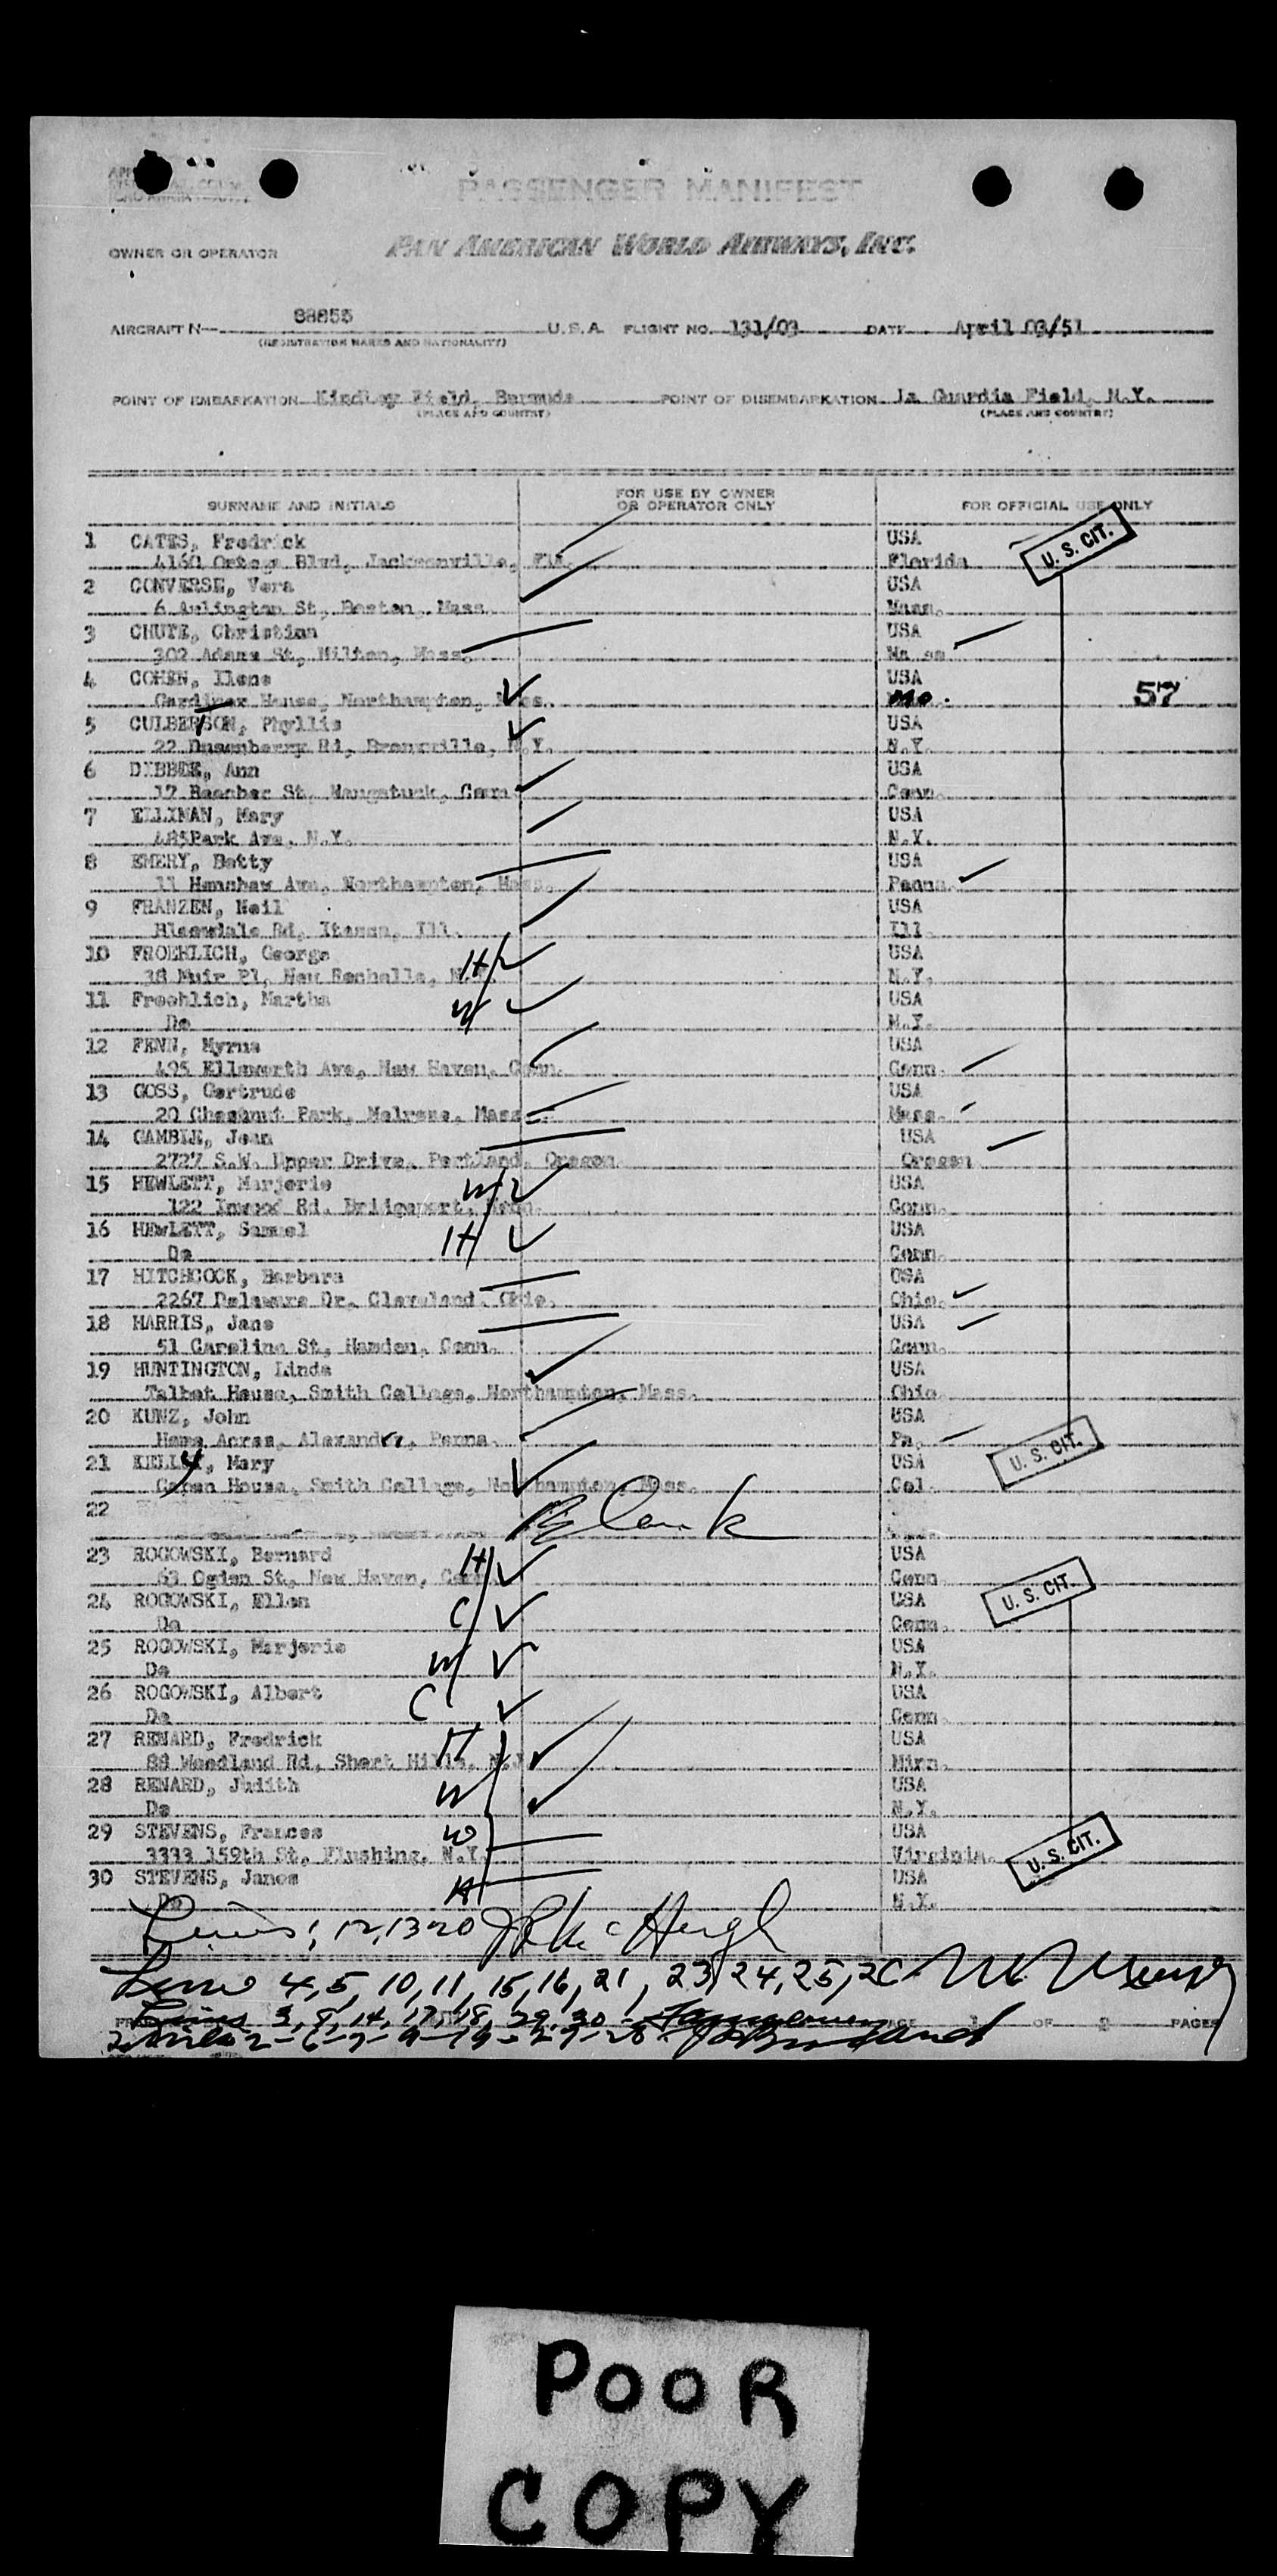 PASSENGER MANIFEST
OWNER OR OPERATOR PAN AMERICAN WORLD AIRWAYS, INC.
AIRCRAFT N— 88855 U.S.A. FLIGHT NO. 131/03 DATE April 03/51
(REGISTRATION MARKS AND NATIONALITY)
POINT OF EMBARKATION Kindley Field, Bermuda POINT OF DISEMBARKATION La Guardia Field, N.Y.
(PLACE AND COUNTRY) (PLACE AND COUNTRY)
SURNAME AND INITIALS FOR USE BY OWNER OR OPERATOR ONLY FOR OFFICIAL USE ONLY
1 CATES, Fredrick USA U. S. CIT.
4160 Ortega Blvd, Jacksonville, Fla. Florida
2 CONVERSE, Vera USA
6 Arlington St, Boston, Mass. Mass.
3 CHUTE, Christian USA
302 Adams St, Milton, Mass. Ma ss
4 COHEN, Ilene USA
Gardiner House, Northampton, Mass. Mo. 57
5 CULBERSON, Phyllis USA
T
22 Dusenberry Rd, Bronxville, N.Y. N.Y.
6 DIBBLE, Ann USA
17 Beecher St, Naugatuck, Conn. Conn.
7 ELLIMAN, Mary USA
485Park Ave, N.Y. N.Y.
8 EMERY, Betty USA
11 Henshaw Ave, Northampton, Mass. Penna.
9 FRANZEN, Neil USA
Rd, Itasca, Ill. Ill.
10 FROEHLICH, George H 2 USA
38 Muir Pl, New Rochelle, N.Y. N.Y.
11 Froehlich, Martha W USA
Do N.Y.
12 FENN, Myrna USA
495 Ellsworth Ave, New Haven, Conn. Conn.
13 GOSS, Gertrude USA
20 Chestnut Park, Melrose, Mass. Mass.
14 GAMBLE, Jean USA
2727 S.W. Upper Drive, Portland, Oregon Oregon
15 HEWLETT, Marjorie W 2 USA
122 Inwood Rd. Bridgeport, Conn. Conn.
16 HEWLETT, Samuel H USA
Do Conn.
17 HITCHCOCK, Barbara USA
2267 Delaware Dr, Cleveland, Ohio. Ohio.
18 HARRIS, Jane USA
51 Carolina St, Hamden, Conn. Conn.
19 HUNTINGTON, Linda USA
Talbot House, Smith College, Northampton, Mass. Ohio.
20 KUNZ, John USA
Home Acres, Alexander, Penna. Pa. U. S. CIT.
21 KELLEY, Mary USA
Capen House, Smith College, Northampton, Mass. Col.
22 Blank
23 ROGOWSKI, Bernard H USA
63 Ogden St, New Haven, Conn. Conn. U. S. CIT.
24 ROGOWSKI, Ellen C USA
Do Conn.
25 ROGOWSKI, Marjorie W USA
Do N.Y.
26 ROGOWSKI, Albert C USA
Do Conn
27 RENARD, Fredrick H USA
88 Woodland Rd, Short Hills, N.J. Minn.
28 RENARD, Judith W USA
Do N.Y.
29 STEVENS, Frances W USA
3333 159th St, Flushing, N.Y. Virginia. U. S. CIT.
30 STEVENS, James H USA
Do N.Y.
Lines: 12, 13 20 McHugh
Lines 4, 5, 10, 11, 15, 16, 21, 23, 24, 25, 26
Lines 3, 8, 14, 17, 18, 29, 30
PAGE 1 OF 2 PAGES
POOR
COPY